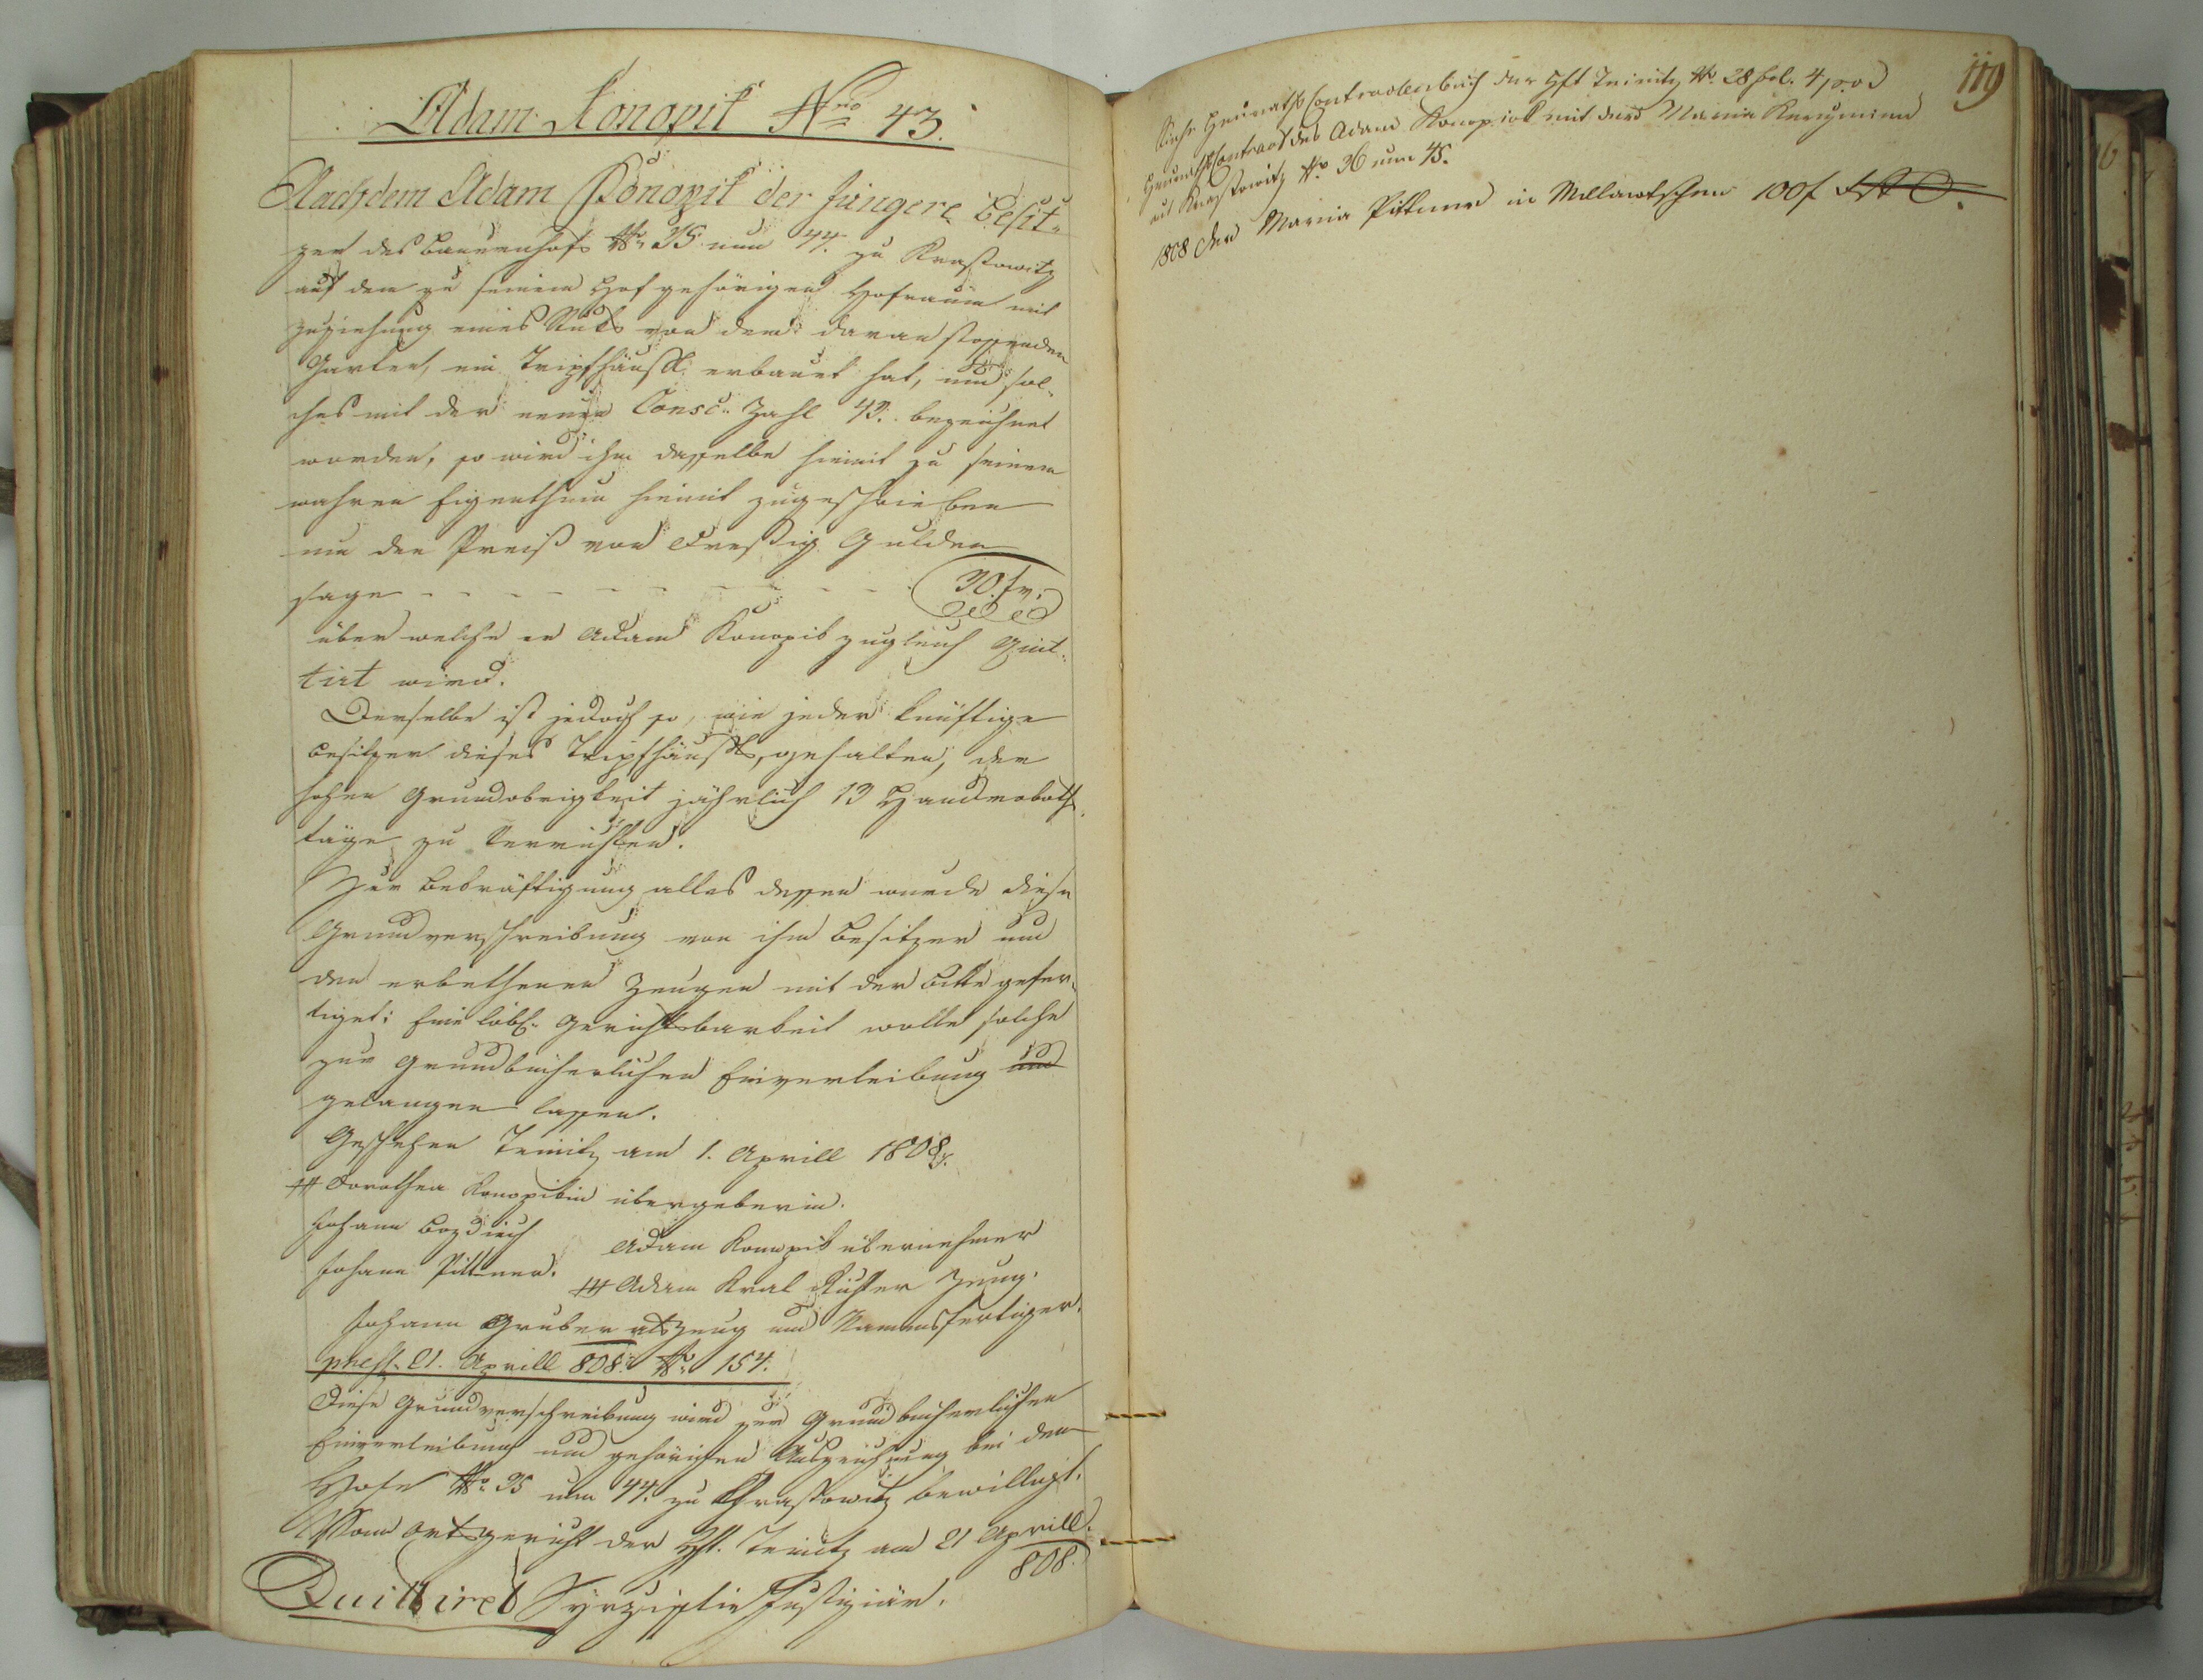 Adam Konopik Nro 43.
Nachdem Adam Konopik der Jüngere Besit-
zer des Bauernhofs No 35 nun 44. zu Krastowitz
auf dem zu seinem Hof gehörigen Hofraum mit
Zuziehung eines Stüks von dem daran stossenden
Garten, ein Tripfhäusl erbauet hat, und sol-
ches mit der neuen Consc. Zahl 43. bezeichnet
worden, so wird ihm dasselbe hiemit zu seinem
wahren Eigenthum hiemit zugeschrieben
um den Preiß von Dreißig Gulden
sage - - - - - - - - - 30 fr.
über welche er Adam Konopik zugleich Quit-
tirt wird.
Derselbe ist jedoch so, wie jeder künftige
Besitzer dieses Tripfhäusls, gehalten, der
hohen Grundobrigkeit jährlich 13 Handroboth
täge zu verrichten.
Zur Bekräftigung alles dessen wurde diese
Grundverschreibung von ihm Besitzer und
den erbethenen Zeugen mit der Bitte gefer-
tiget: Eine löbl. Gerichtsbarkeit wolle solche
zur Grundbücherlichen Einverleibung und
gelangen lassen.
Geschehen Teinitz am 1. Aprill 1808.
+++ Dorothea Konopikin übergeberin.
Johann
Adam Konopik übernehmer
Johann Pittner.
+++ Adam Kral Richter Zeug.
Johann Gruber als Zeug und Namensfertiger.
praes. 21. Aprill 808. No 154.
Diese Grundverschreibung wird zur Grundbücherlichen
Einverleibung und gehörigen Auszeichnung bei dem
Hofe No 35 nun 44. zu Chrastowitz bewilligt.
Vom Ortsgericht der Hft. Teinitz am 21 Aprill
808.
Quittiret Justiziär.
119
Siehe Heuraths Contractenbuch der Hft Teinitz No 28 fol. 4
Heuraths Contract des Adam Konopik mit der Maria
aus Krastowitz No 36 nun 45.
1808 der Maria Pittner in Millawtschen 100 f